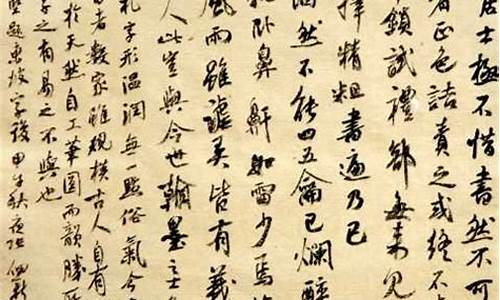 居士極不惜書然不可
者正色詰責之或終不
鎖試禮部每來見
擇精粗書遍乃已
然不能四五龠已爛醉
臥鼻鼾如雷少焉
風雨雖謔弄皆有義
人此豈與今世翰墨之士
札字形溫潤無一點俗氣今
書者數家雖規模古人自有
於天然自工筆圓而韻勝所
子之有易之不與也
堅題東坡字後甲午秋夜